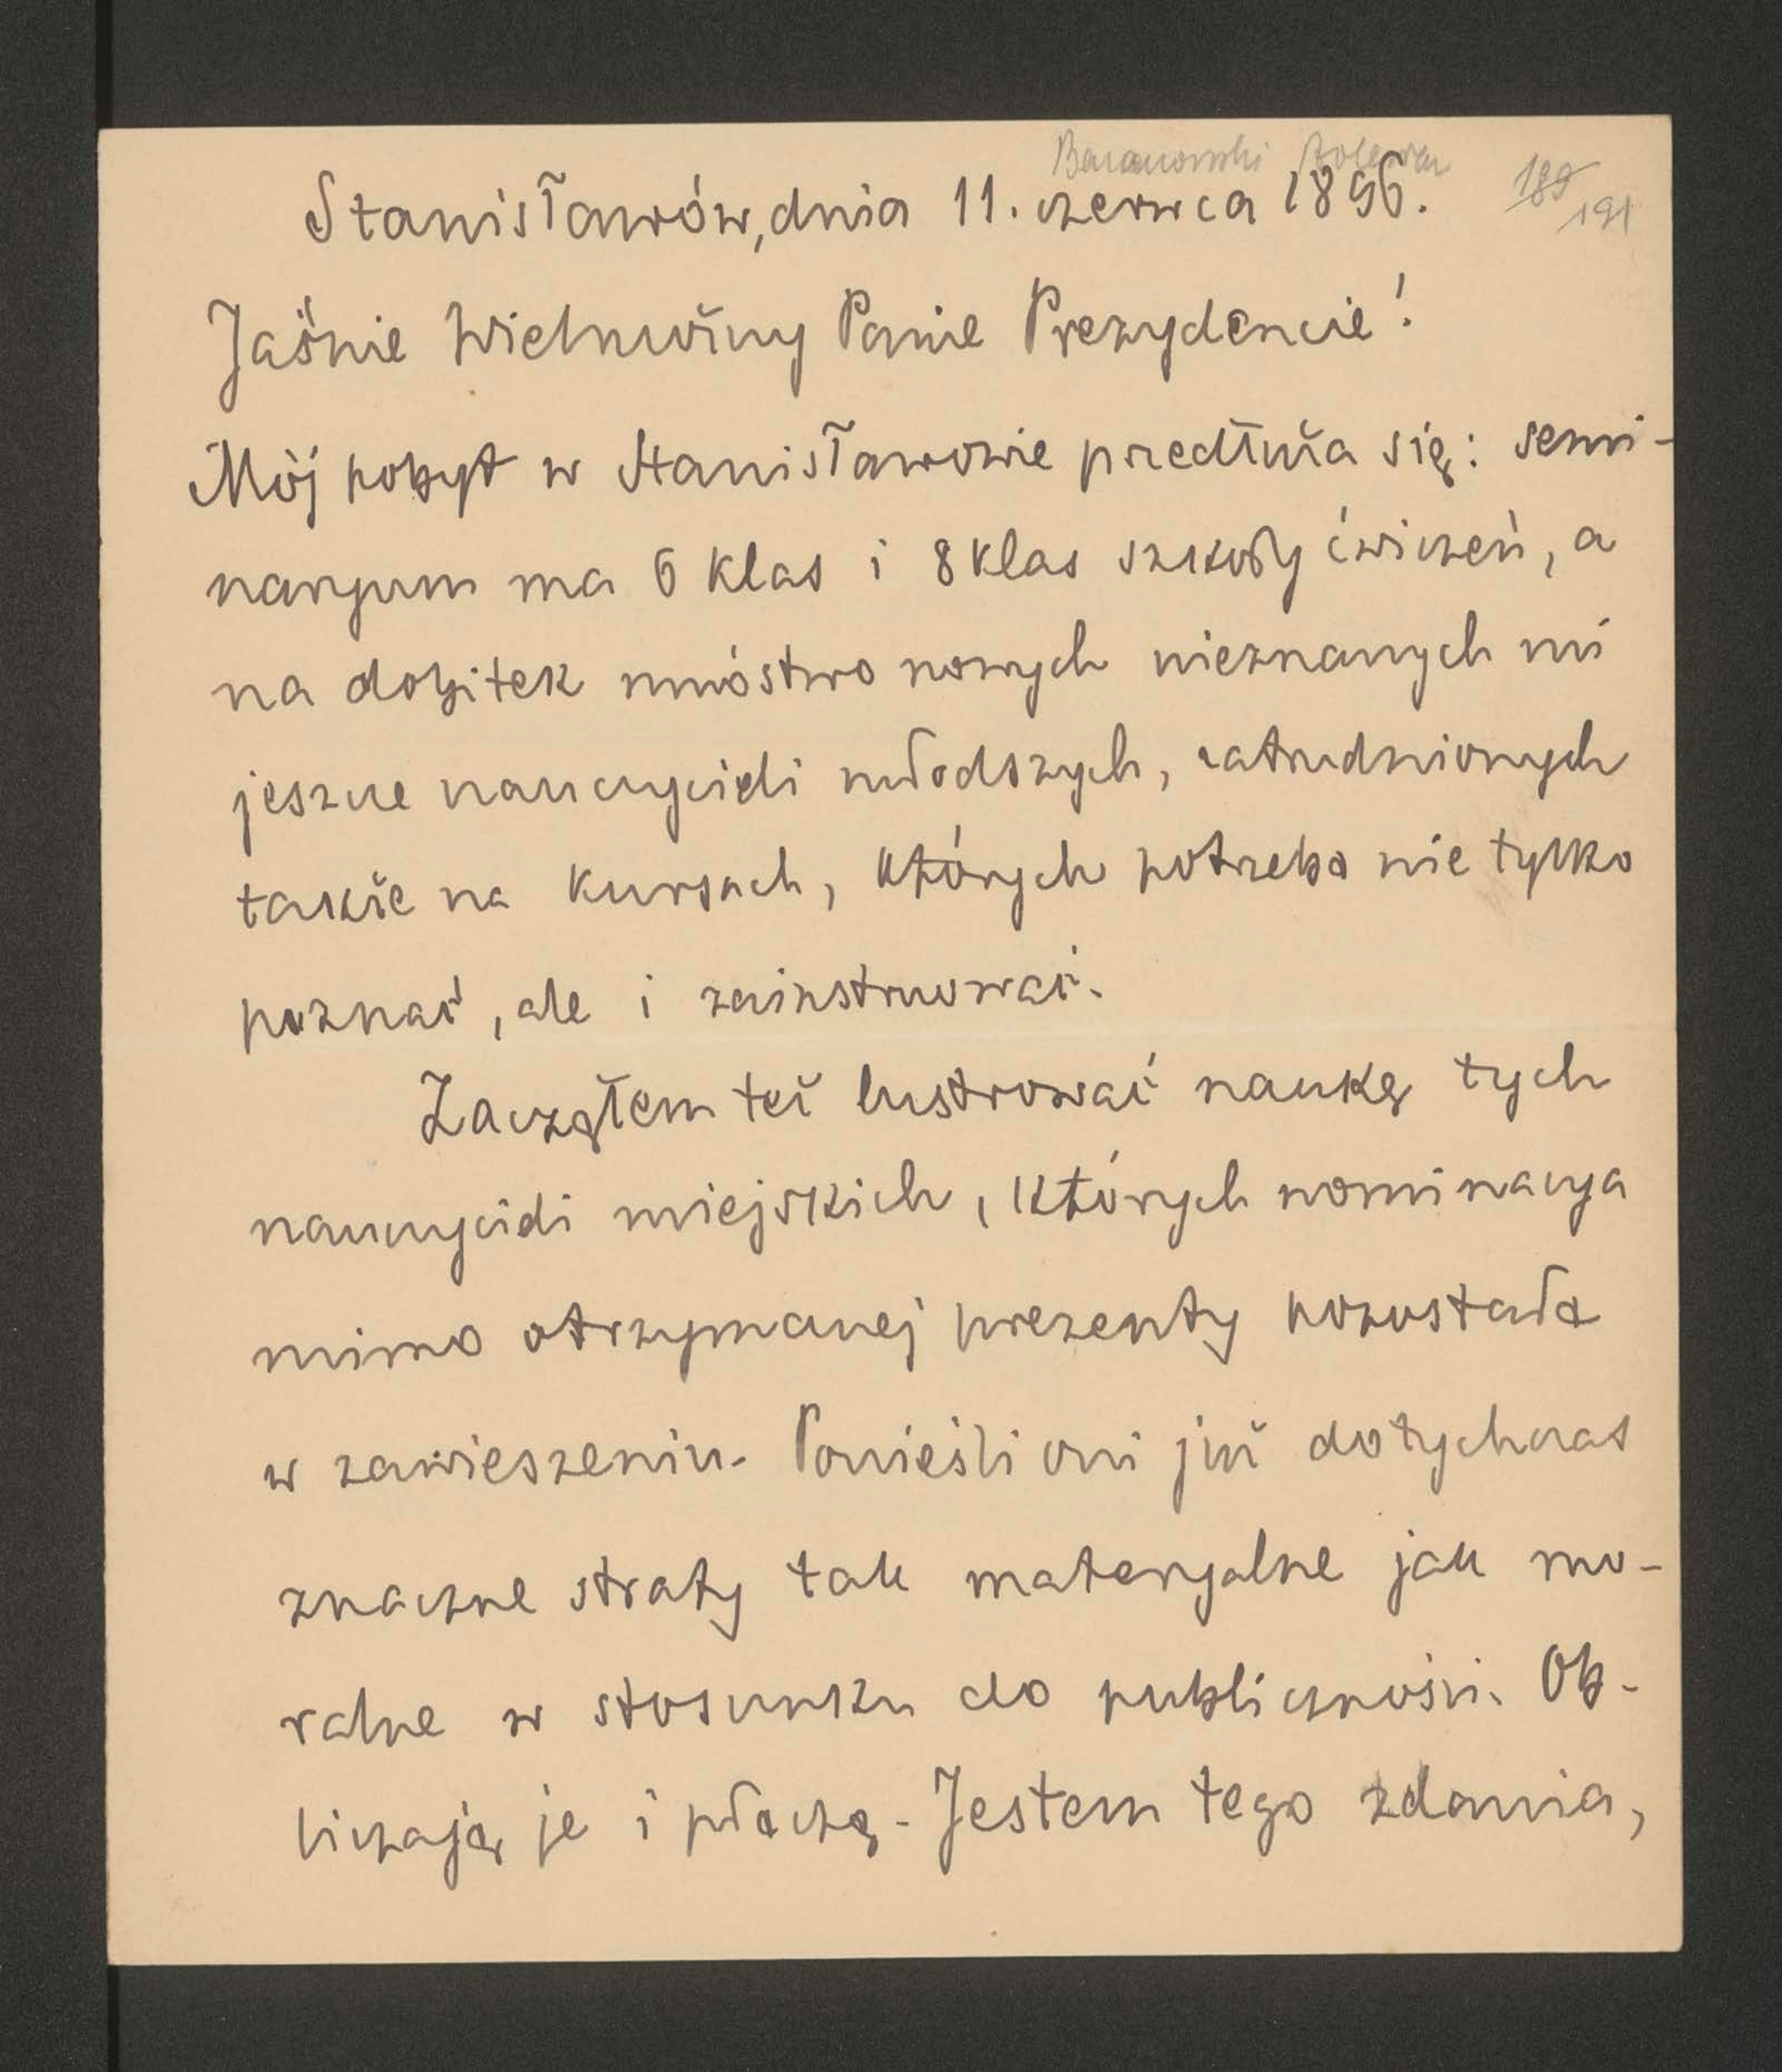 Baranowski Bolesław
189
191
Stanisławów, dnia 11. czerwca 1896.
Jaśnie Wielmożny Panie Prezydencie!
Mój pobyt w Stanisławowie przedłuża się: semi-
naryum ma 6 klas i 8 klas szkoły ćwiczeń, a
na dobitek mnóstwo nowych nieznanych mi
jeszcze nauczycieli młodszych, zatrudnionych
także na kursach, których potrzeba nie tylko
poznać, ale i zainstruować.
Zacząłem też lustrować naukę tych
nauczycieli miejskich, których nominacya
mimo otrzymanej prezenty pozostała
w zawieszeniu. Ponieśli oni już dotychczas
znaczne straty tak materyalne jak mo-
ralne w stosunku do publiczności. Ob-
liczają je i płaczą. Jestem tego zdania,